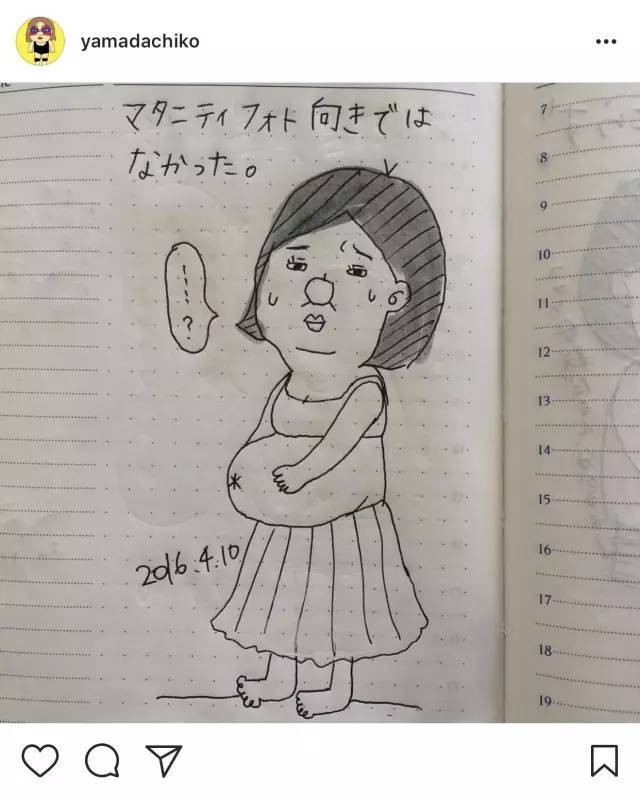 yamadachiko
マタニティフォト向きでは
なかった。
・・・・？
2016.4.10
7
8
9
10
11
12
13
14
15
16
17
18
19